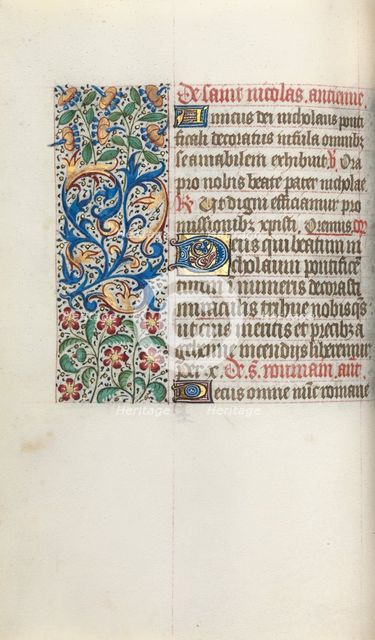 De saint nicolas. antienne.
Amicus dei nicholaus ponti
ficali decoratus infula omnibz
se amabilem exhibuit ℟ Ora
pro nobis beate pater nicholae
℟ Ut digni efficiamur pro
missionibz xpisti. Oremus. or
Deus qui beatum ni
cholaum pontificem
tuum innumeris decorasti
miraculis tribue nobis qs
ut eius meritis et precibz a
gehenne incendiis liberemur
Per x. De s. rommain. ant.
Decus omne nrē romane
Heritage
Heritage